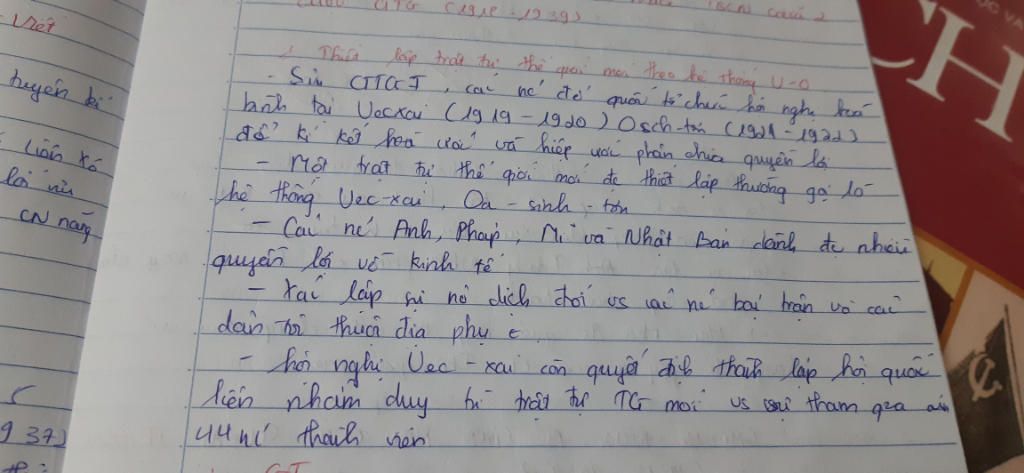 CTTG (1918-1939)
1 Thiết lập trật tự thế giới mới theo hệ thống V-O
- Sau CTTGI, các nc đế quốc tổ chức hội nghị hoà
bình tại Vecxai (1919-1920) Osch-tơn (1921-1922)
để kí kết hoà ước và hiệp ước phân chia quyền lợi
- Một trật tự thế giới mới đc thiết lập thường gọi là
hệ thống Vec-xai, Oa-sinh-tơn
- Các nc Anh, Pháp, Mĩ và Nhật Bản dành đc nhiều
quyền lợi về kinh tế
- Xác lập sự nô dịch đối vs các nc bại trận và các
dân tộc thuộc địa phụ t
- hội nghị Vec-xai còn quyết định thành lập hội quốc
liên nhằm duy trì trật tự TG mới vs sự tham gia của
44 nc thành viên
Việt
huyên
Liên Xô
lợi
CN nặng
937)
CH